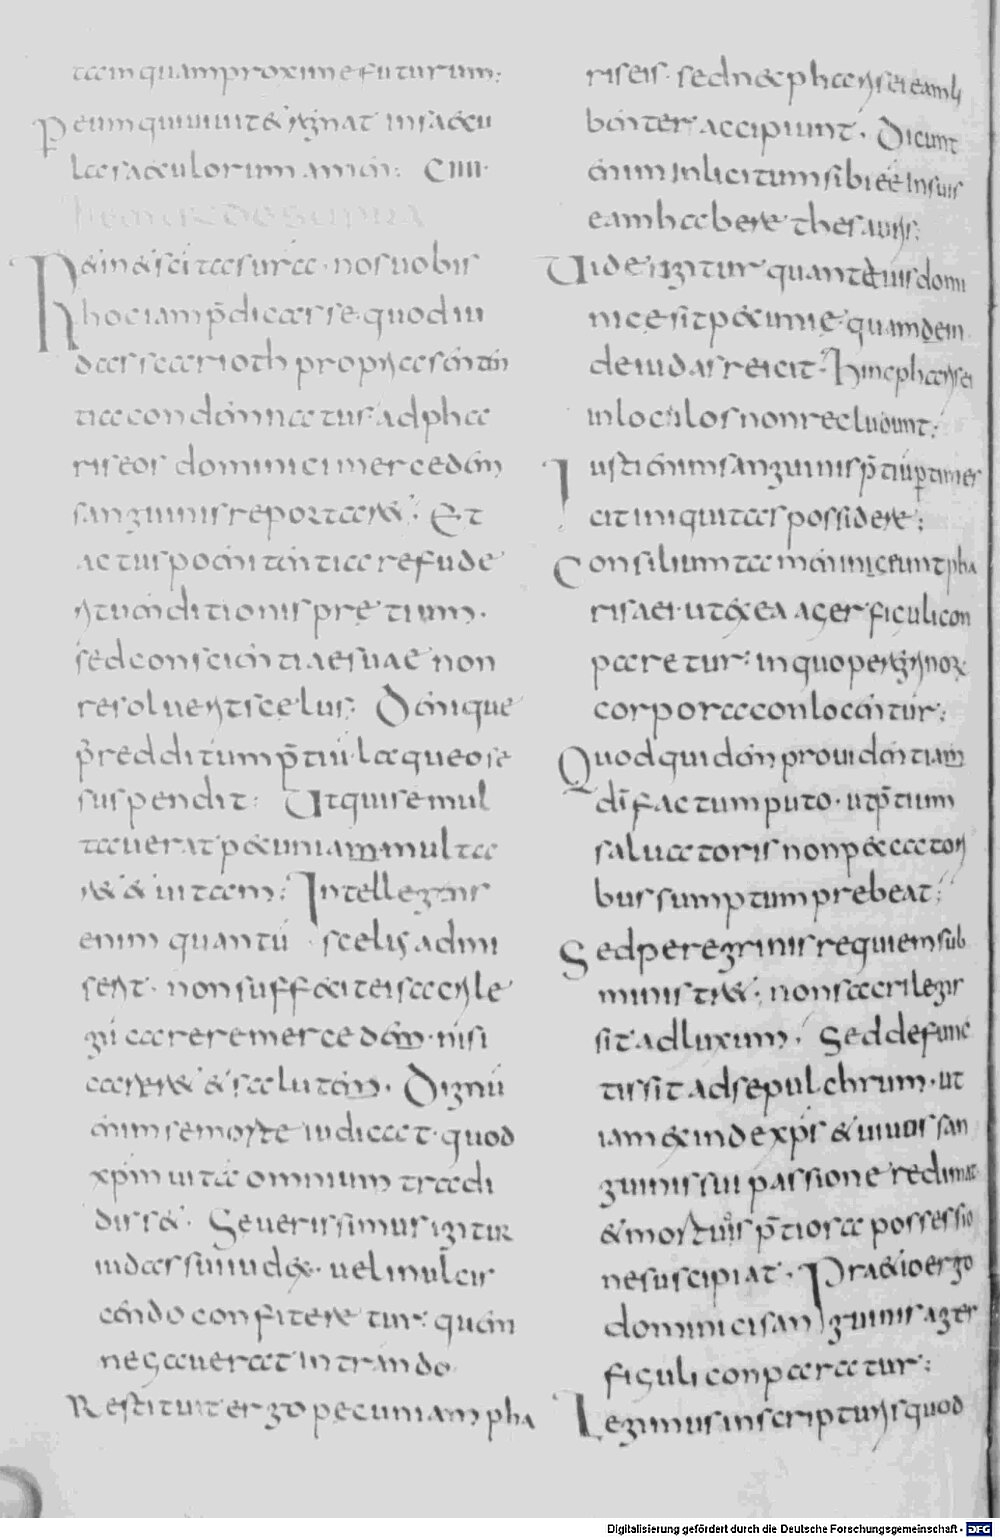 tam quam proxime futurum:
Per eum qui uiuit et regnat in saecu
la saeculorum amen: CIIII.
item unde supra
Retinet scitas ura. nos uobis
hoc iam p̄dicasse. quod iu
das scarioth propria sententia
condemnatus ad pha
riseos dominici mercedem
sanguinis reportaret: Et
actus poenitentia refude
rit uenditionis pretium.
sed conscientiae suae non
resoluerit scelus: Denique
redditum p̄tiū laqueo se
suspendit: Ut qui se mul
tauerat pecuniam multa
ret et uitam: Intellegens
enim quantū sceleris admi
serit. non sufficit ei sacrile
gii carere mercedem. nisi
careret et salutem. Dignū
enim se morte iudicat. quod
xp̄m uitā omnium tradi
disset. Seuerissimus igitur
iudas sui iudex. uel in ulcis
cendo confiteretur: quem
negauerat in tradendo
Restituit ergo pecuniam pha
riseis. sed nec pharisei eam li
benter accipiunt. Dicunt
enim inlicitum sibi eē in suis
eam habere thesauris:
Videte igitur quanti uis domi
nice sit pecunie. quam dein
de iudas reicit. Hinc pharisei
in loculos non recludunt:
Iusti enim sanguinis p̄tiū ꝑtimes
cit iniquitas possidere:
Consilium tamen inierunt pha
risaei. ut ex ea ager figuli con
pararetur: in quo peregrinor
corpora conlocentur:
Quod quidem prouidentiam
dī factum puto. ut p̄tium
saluatoris non peccatori
bus sumptum prebeat:
Sed peregrinis requiem sub
ministret: non sacrilegis
sit ad luxum. Sed defunc
tis sit ad sepulchrum. ut
iam exinde xp̄s et uiuos san
guinis sui passione redimat
et mortuis p̄tiosa possessio
ne suscipiat. Praetio ergo
dominici sanguinis ager
figuli conparatur:
Legimus in scripturis quod